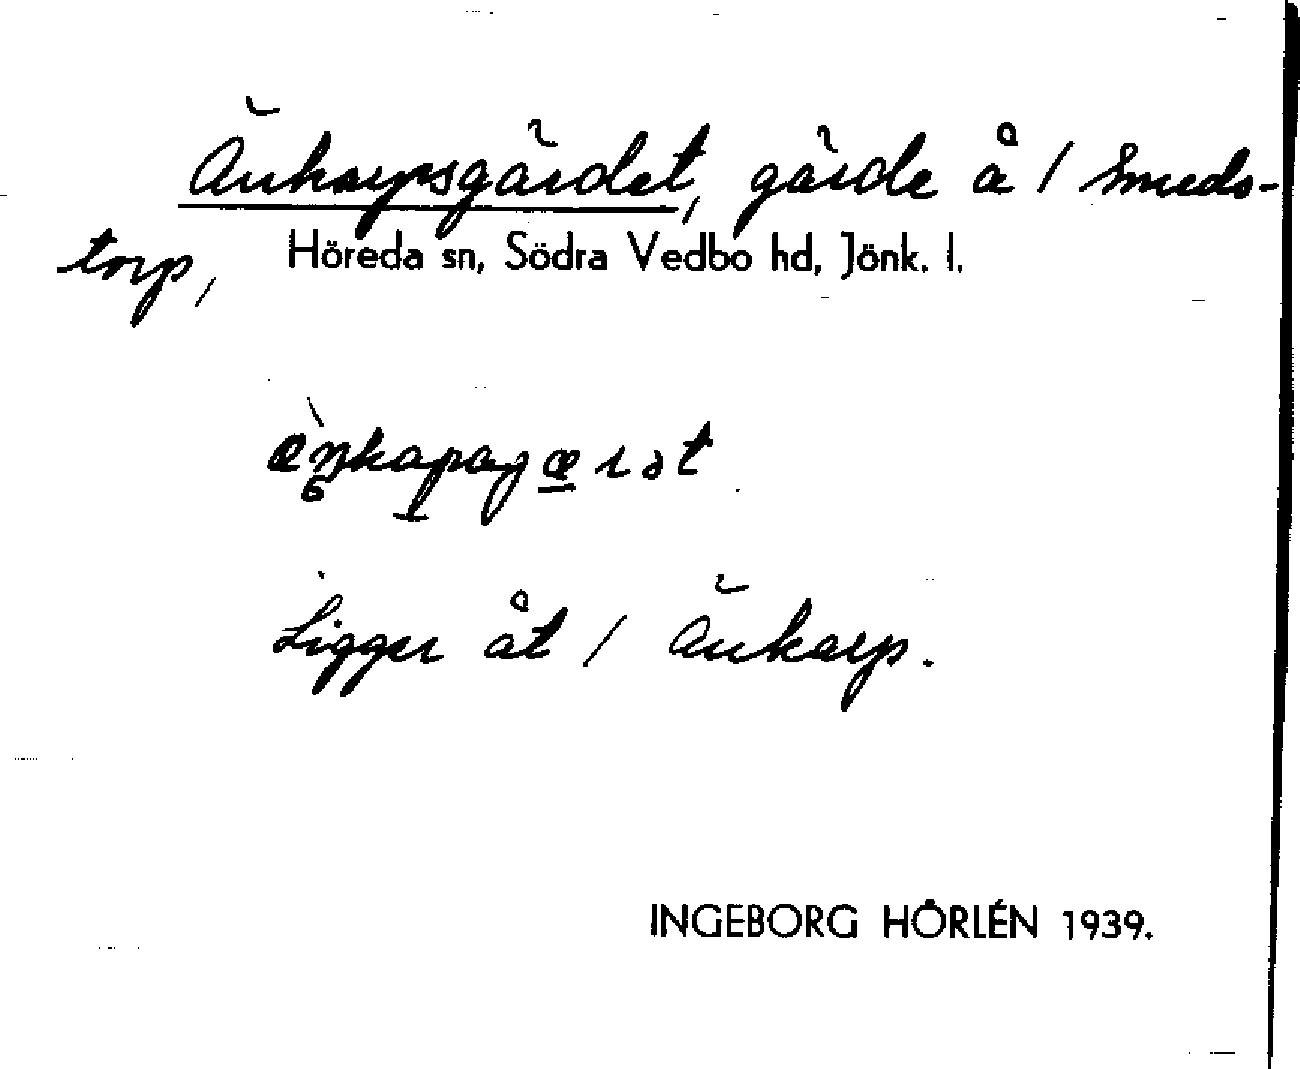 Änkarpsgärdet, gärde å / Smeds-
torp, Höreda sn, Södra Vedbo hd, Jönk. l.
Ligger åt / Änkarp.
INGEBORG HÖRLÉN 1939.